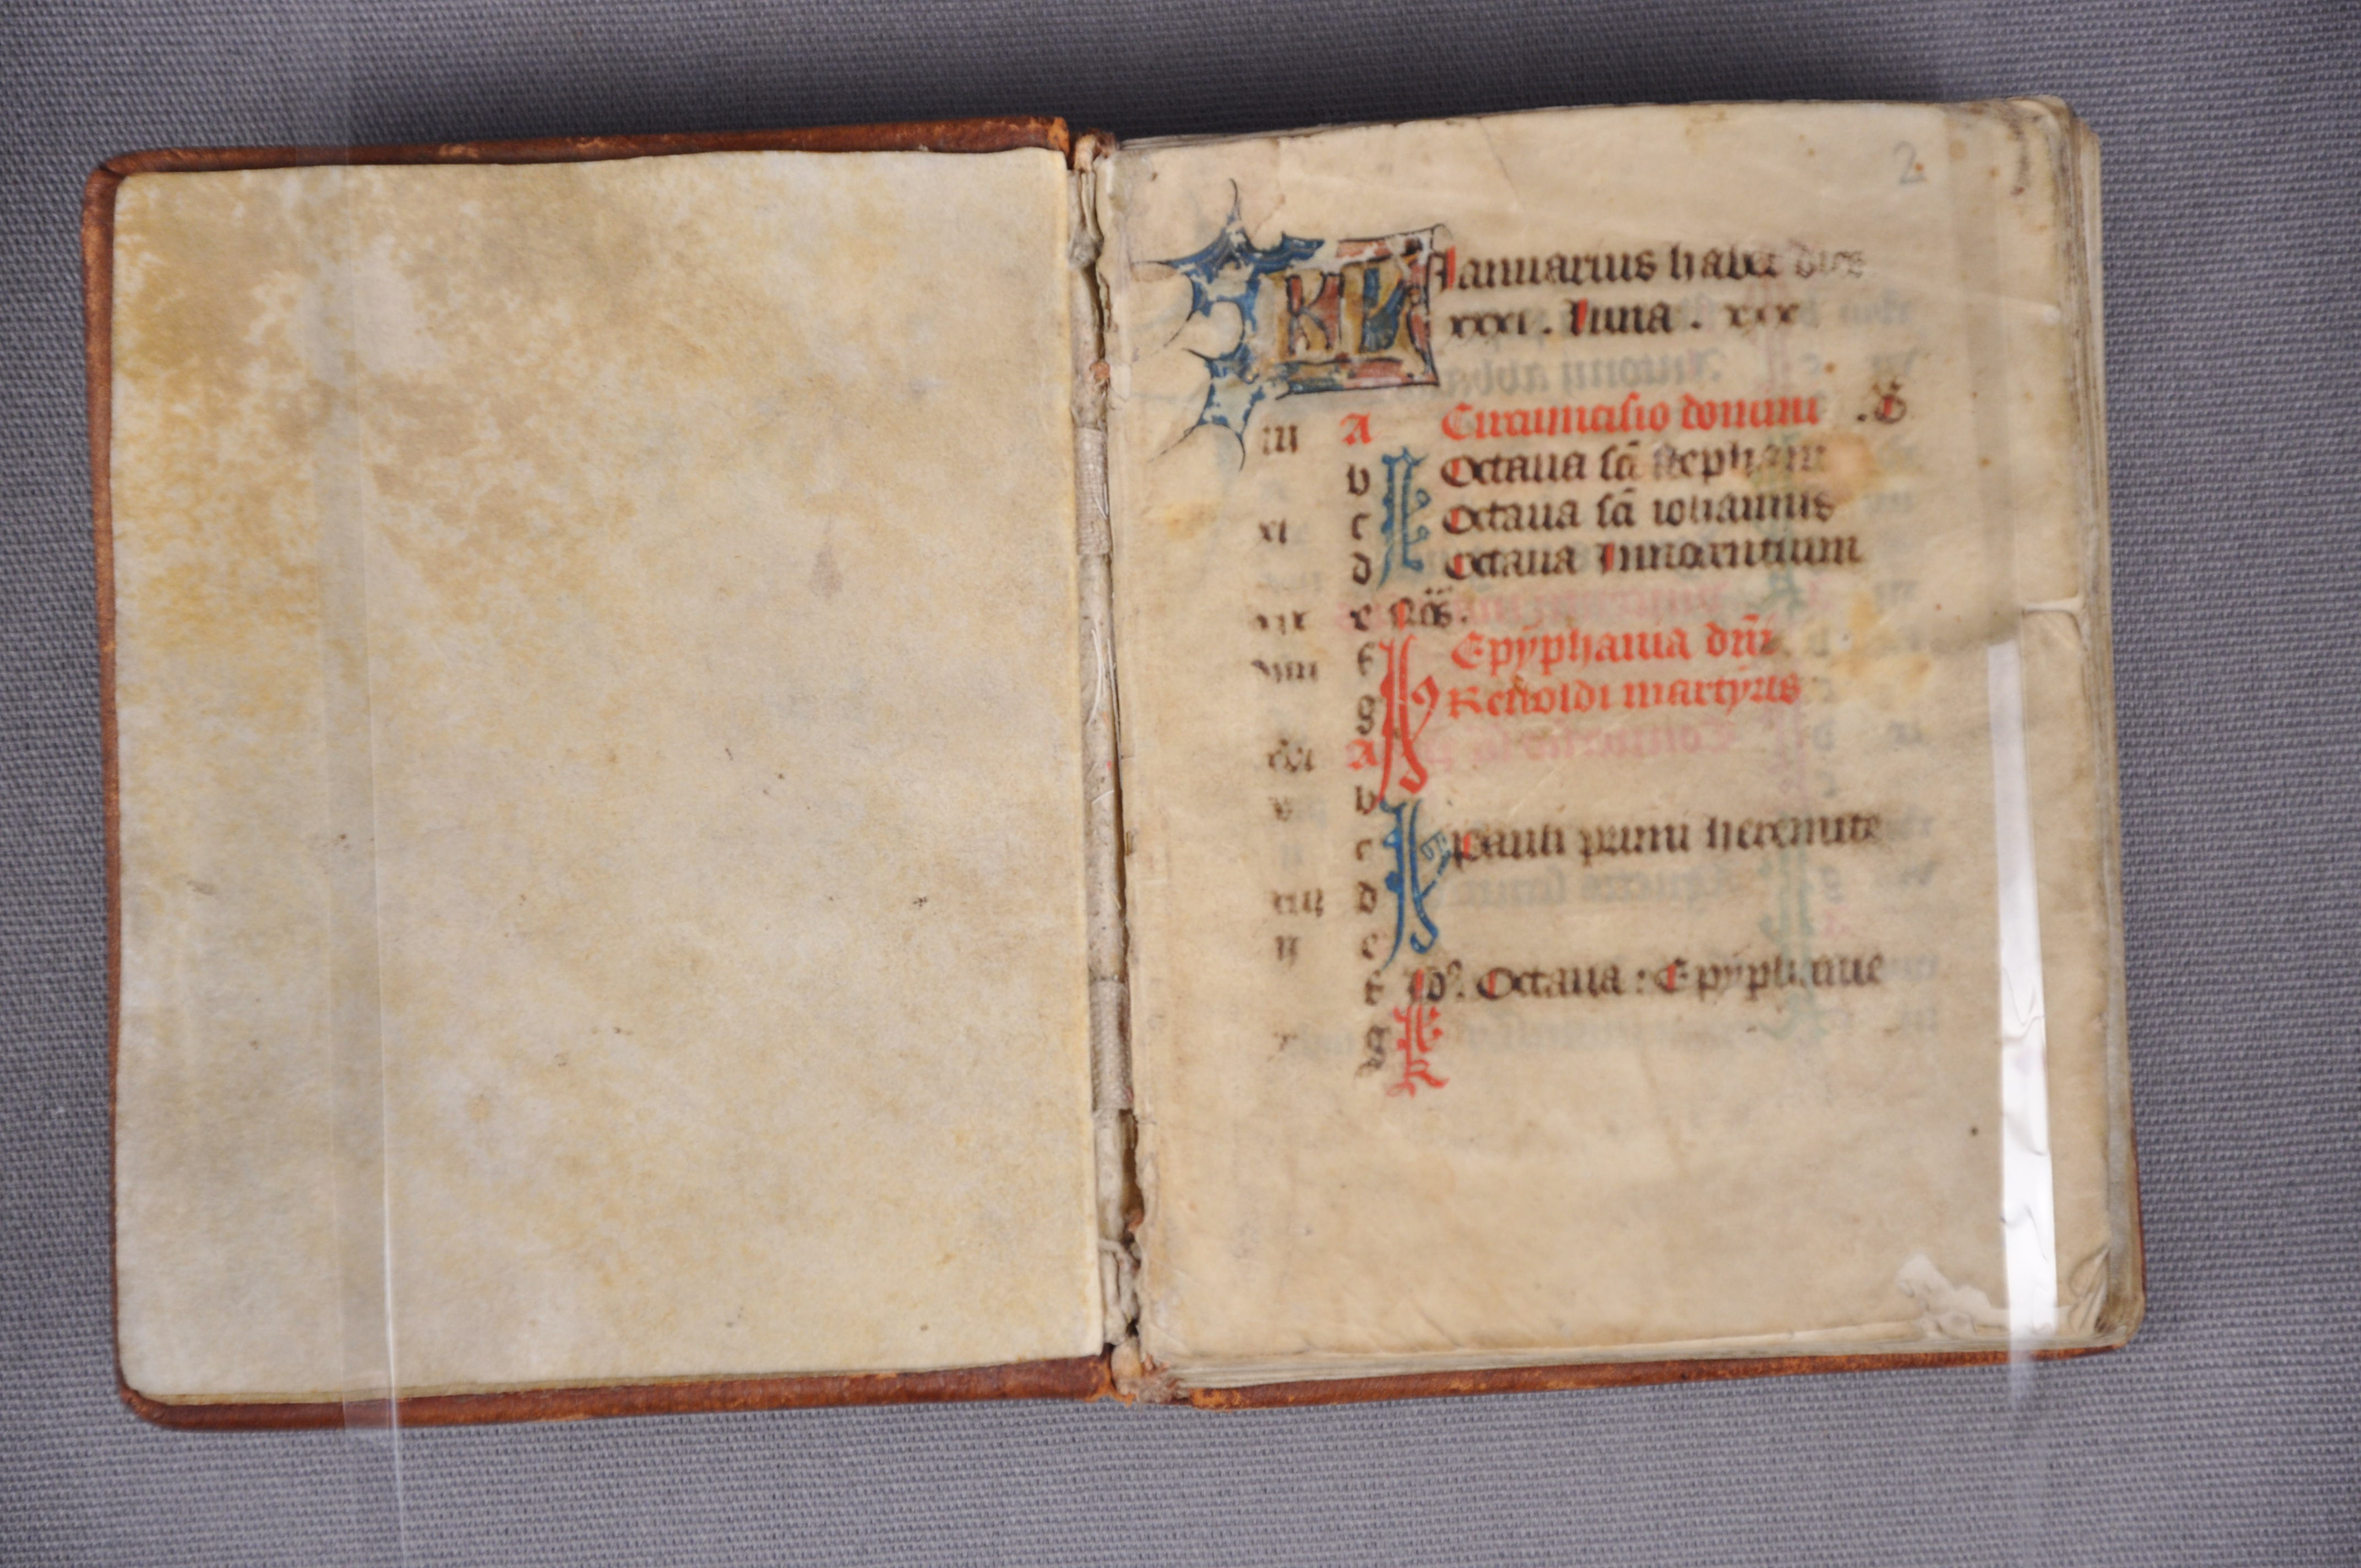 2
KL Januarius habet dies
xxxi . luna . xxx
iii A Circumcisio domini .
b Octaua sc̄i stephani
xi c Octaua sc̄i iohannis
d Octaua Innocentium
xix e Noōs.
viii f Epyphania dn̄i
g Reinoldi martyris
xvi A
v b
c pauli primi heremite
xiii d
ii e
f Idꝰ. Octaua : Epyphanie
x g